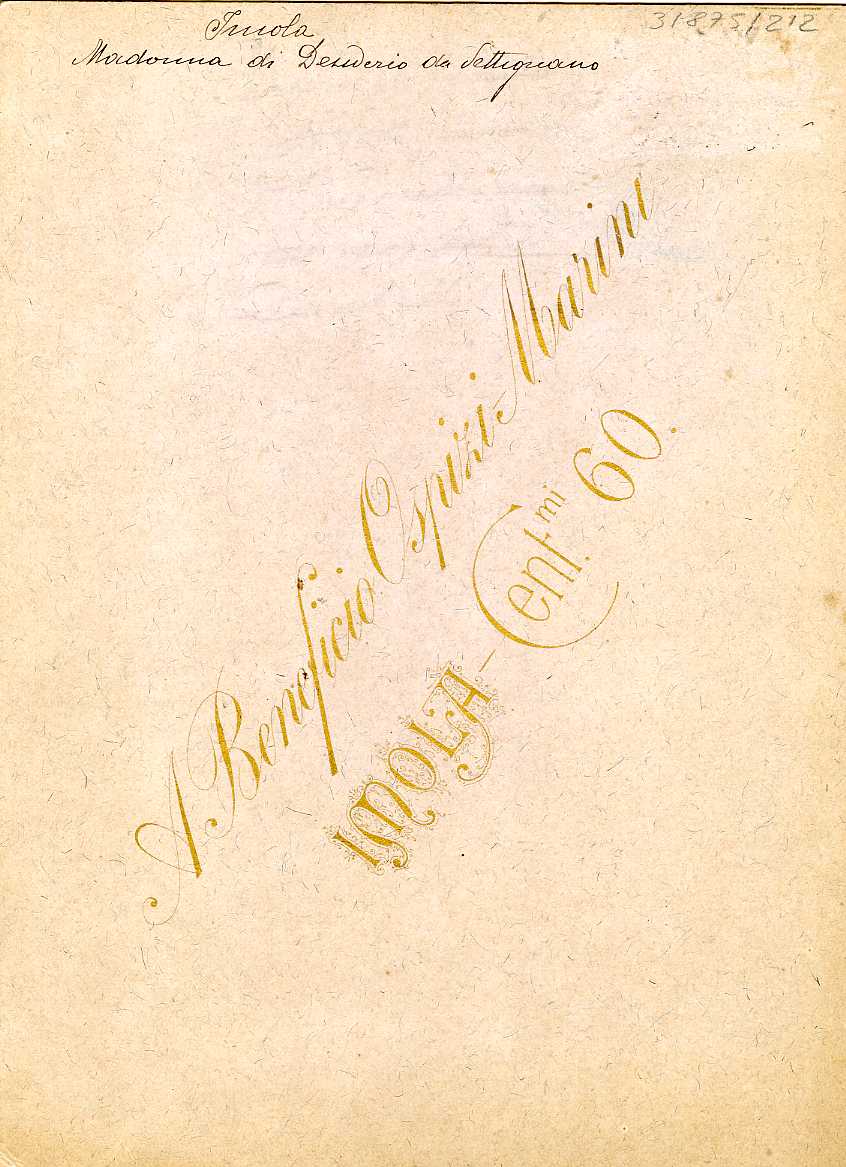 Imola
31875/212
Madonna di Desiderio da Settignano
A Beneficio Ospizi Marini
IMOLA - Cent.mi 60.